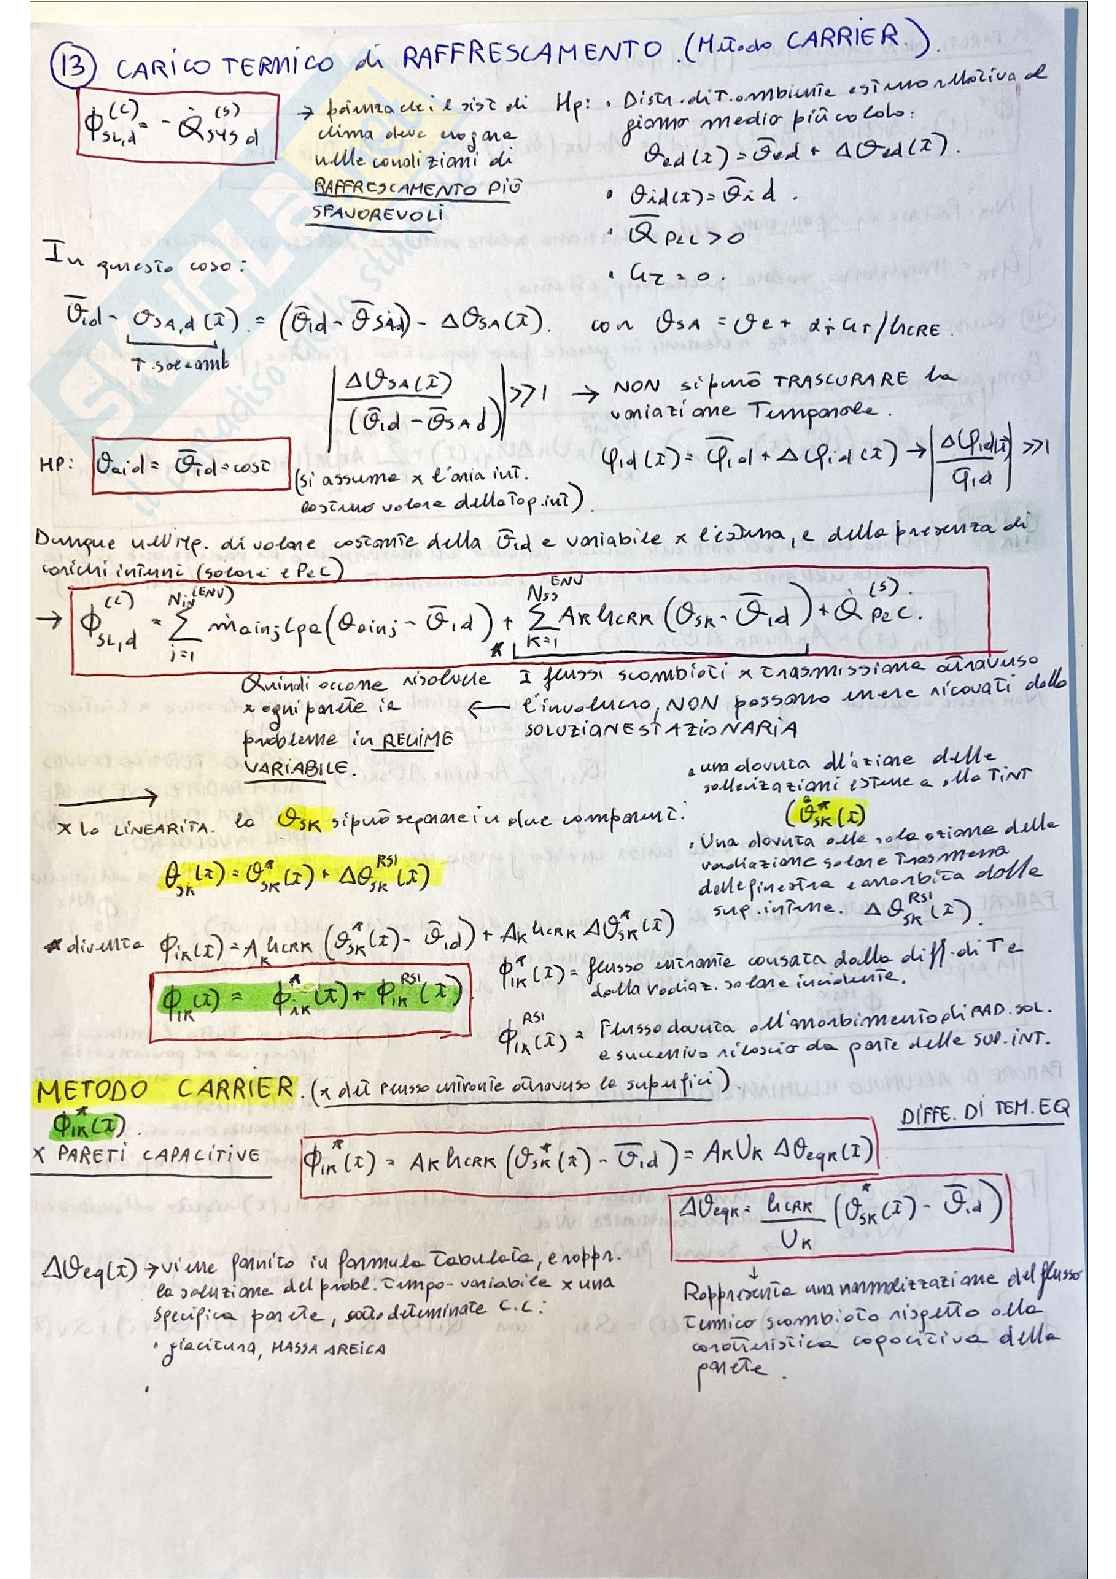 13 CARICO TERMICO di RAFFRESCAMENTO. (Metodo CARRIER).
Φ_SL,d^(C) = - Q̇_SYS d^(S)
→ potenza che il sist. di
clima deve erogare
nelle condizioni di
RAFFRESCAMENTO PIÙ
SFAVOREVOLI
Hp: • Distr. di T. ambiente esterno relativa al
giorno medio più caldo:
ϑed(τ) = ϑ̄ed + Δϑed(τ).
• ϑid(τ) = ϑ̄id.
• Q̄ PeC > 0
• Gτ = 0.
In questo caso:
ϑ̄id - ϑSA,d(τ) = (ϑ̄id - ϑ̄SAd) - ΔϑSA(τ). con ϑSA = ϑe + αr Gτ/hCRE.
T. sole-amb
|ΔϑSA(τ) / (ϑ̄id - ϑ̄SAd)| >> 1 → NON si può TRASCURARE la
variazione Temporale.
HP: ϑaid = ϑ̄id = cost
(si assume x l'aria int.
costumo valore della Top.int).
φid(τ) = φ̄id + Δφid(τ) → |Δφid(τ) / φ̄id| >> 1
Dunque nell'Hp. di valore costante della ϑ̄id e variabile x l'esterna, e della presenza di
carichi interni (solari e PeC)
→ Φ_SL,d^(C) = Σ_{j=1}^{Nin (ENV)} ṁainj cpa (ϑainj - ϑ̄id) + Σ_{K=1}^{Nss ENV} AK hCRK (ϑSK - ϑ̄id) + Q̇ PeC^(S).
*
Quindi occorre risolvere
x ogni parete il
problema in REGIME
VARIABILE.
← I flussi scambiati x trasmissione attraverso
l'involucro, NON possono essere ricavati dalla
SOLUZIONE STAZIONARIA
→
x la LINEARITÀ. la ϑSK si può separare in due component.:
• una dovuta all'azione delle
sollecitazioni esterne e alla Tint
(ϑ*SK(τ)
• Una dovuta alla sola azione della
radiazione solare trasmessa
delle finestre e assorbita dalle
sup. interne. Δϑ_SK^RSI(τ).
ϑSK(τ) = ϑ*SK(τ) + Δϑ_SK^RSI(τ)
* diventa ϕiK(τ) = AK hCRK (ϑ*SK(τ) - ϑ̄id) + AK hCRK Δϑ*SK(τ)
ϕiK(τ) = ϕ*iK(τ) + ϕ_iK^RSI(τ)
ϕ*iK(τ) = flusso entrante causato dalla diff. di T e
dalla radiaz. solare incidente.
ϕ_iK^RSI(τ) = Flusso dovuto all'assorbimento di RAD. SOL.
e successivo rilascio da parte delle SUP. INT.
METODO CARRIER. (x det flusso entrante attraverso le superfici).
ϕ*iK(τ).
x PARETI CAPACITIVE
ϕ*iK(τ) = AK hCRK (ϑ*SK(τ) - ϑ̄id) = AK UK ΔϑeqK(τ)
DIFFE. DI TEM. EQ
ΔϑeqK = hCRK / UK (ϑ*SK(τ) - ϑ̄id)
↓
Rappresenta una normalizzazione del flusso
termico scambiato rispetto alla
caratteristica capacitiva della
parete.
Δϑeq(τ) → viene fornito in formula tabulata, e rappr.
la soluzione del probl. tempo-variabile x una
specifica parete, sotto determinate C.C:
• giacitura, MASSA AREICA
•